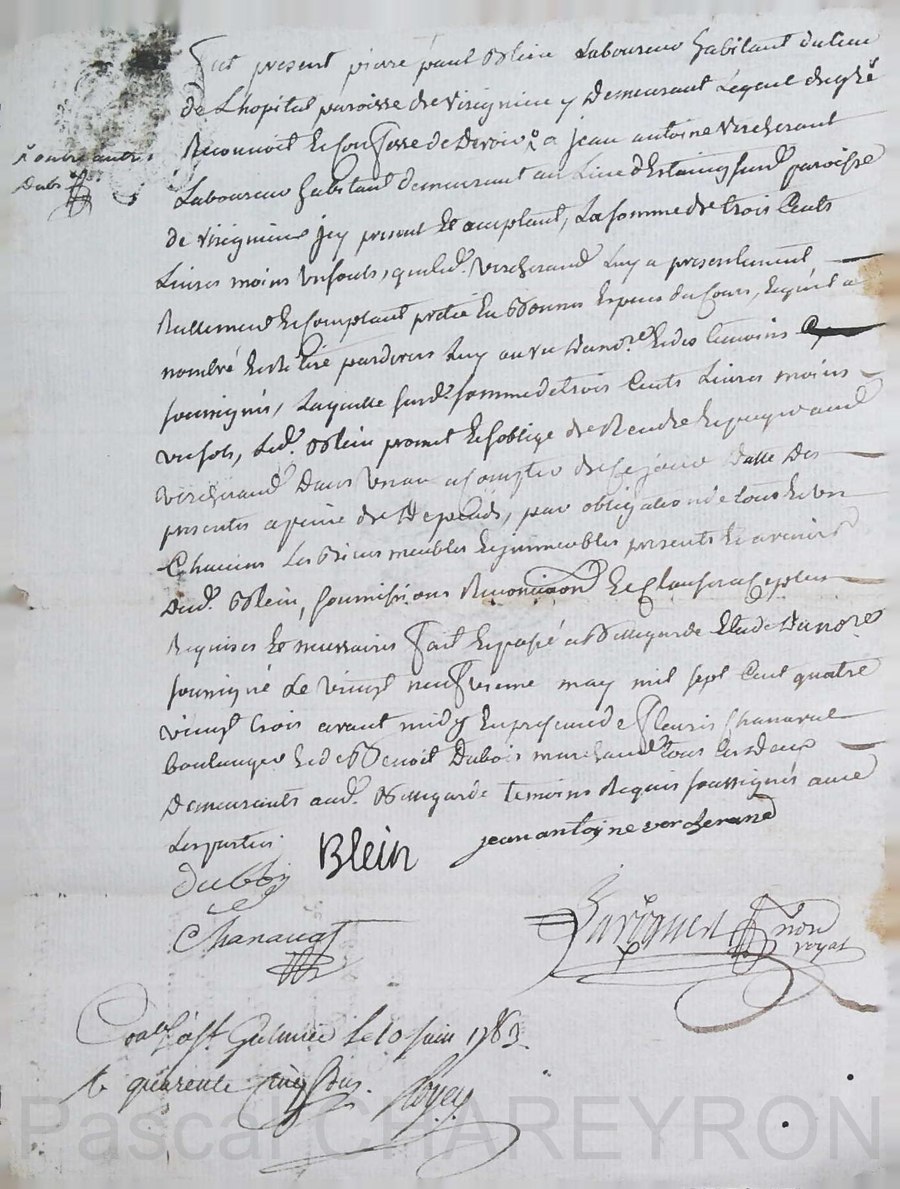 Fut present pierre paul Blein Laboureur habitant du lieu
de Lhopital paroisse de Virignieu y Demeurant Lequel de gré
Reconnoit et confesse devoir a jean antoine vercherand
x outre autres
Dubs
Laboureur habitant demeurant au Lieu d'Estaing susd. paroisse
de virignieu jcy present et acceptant, La somme de trois Cents
Livres moins un souls, que led. vercherand Luy a presentement
Reellement et comptant prété en Bonnes Espèces du Cours, Lequel a
nombré et retiré pardevers Luy au vu Du no.re et des temoins
soussignés, Laquelle susd. somme de trois Cents Livres moins
un sols, Led. Blein promet et s'oblige de Rendre et payer aud.
vercherand Dans un an a compter de ce jour Datte Des
presentes a peine de Depends, par obligation de tous et un
Chacuns Les Biens meubles et jmmeubles presents et avenir
Dud. Blein, soumissions Renonciaons et Clauses a ce plus
Requises et necessaires fait et passé a Bellegarde Etude Du no.re
soussigné Le vingt neufvieme may mil sept Cent quatre
vingt trois avant midy en presence de fleuris Chanavat
boulanger et de Benoit Dubois marchand tous Les deux
Demeurants aud. Bellegarde temoins Requis soussignés avec
Les parties
Blein
jean antoyne vercherand
duboy
Chanavat
nore
royal
Con.le a st Galmier le 10 juin 1783.
R. quarente cinq sous.
Royey
Pascal CHAREYRON